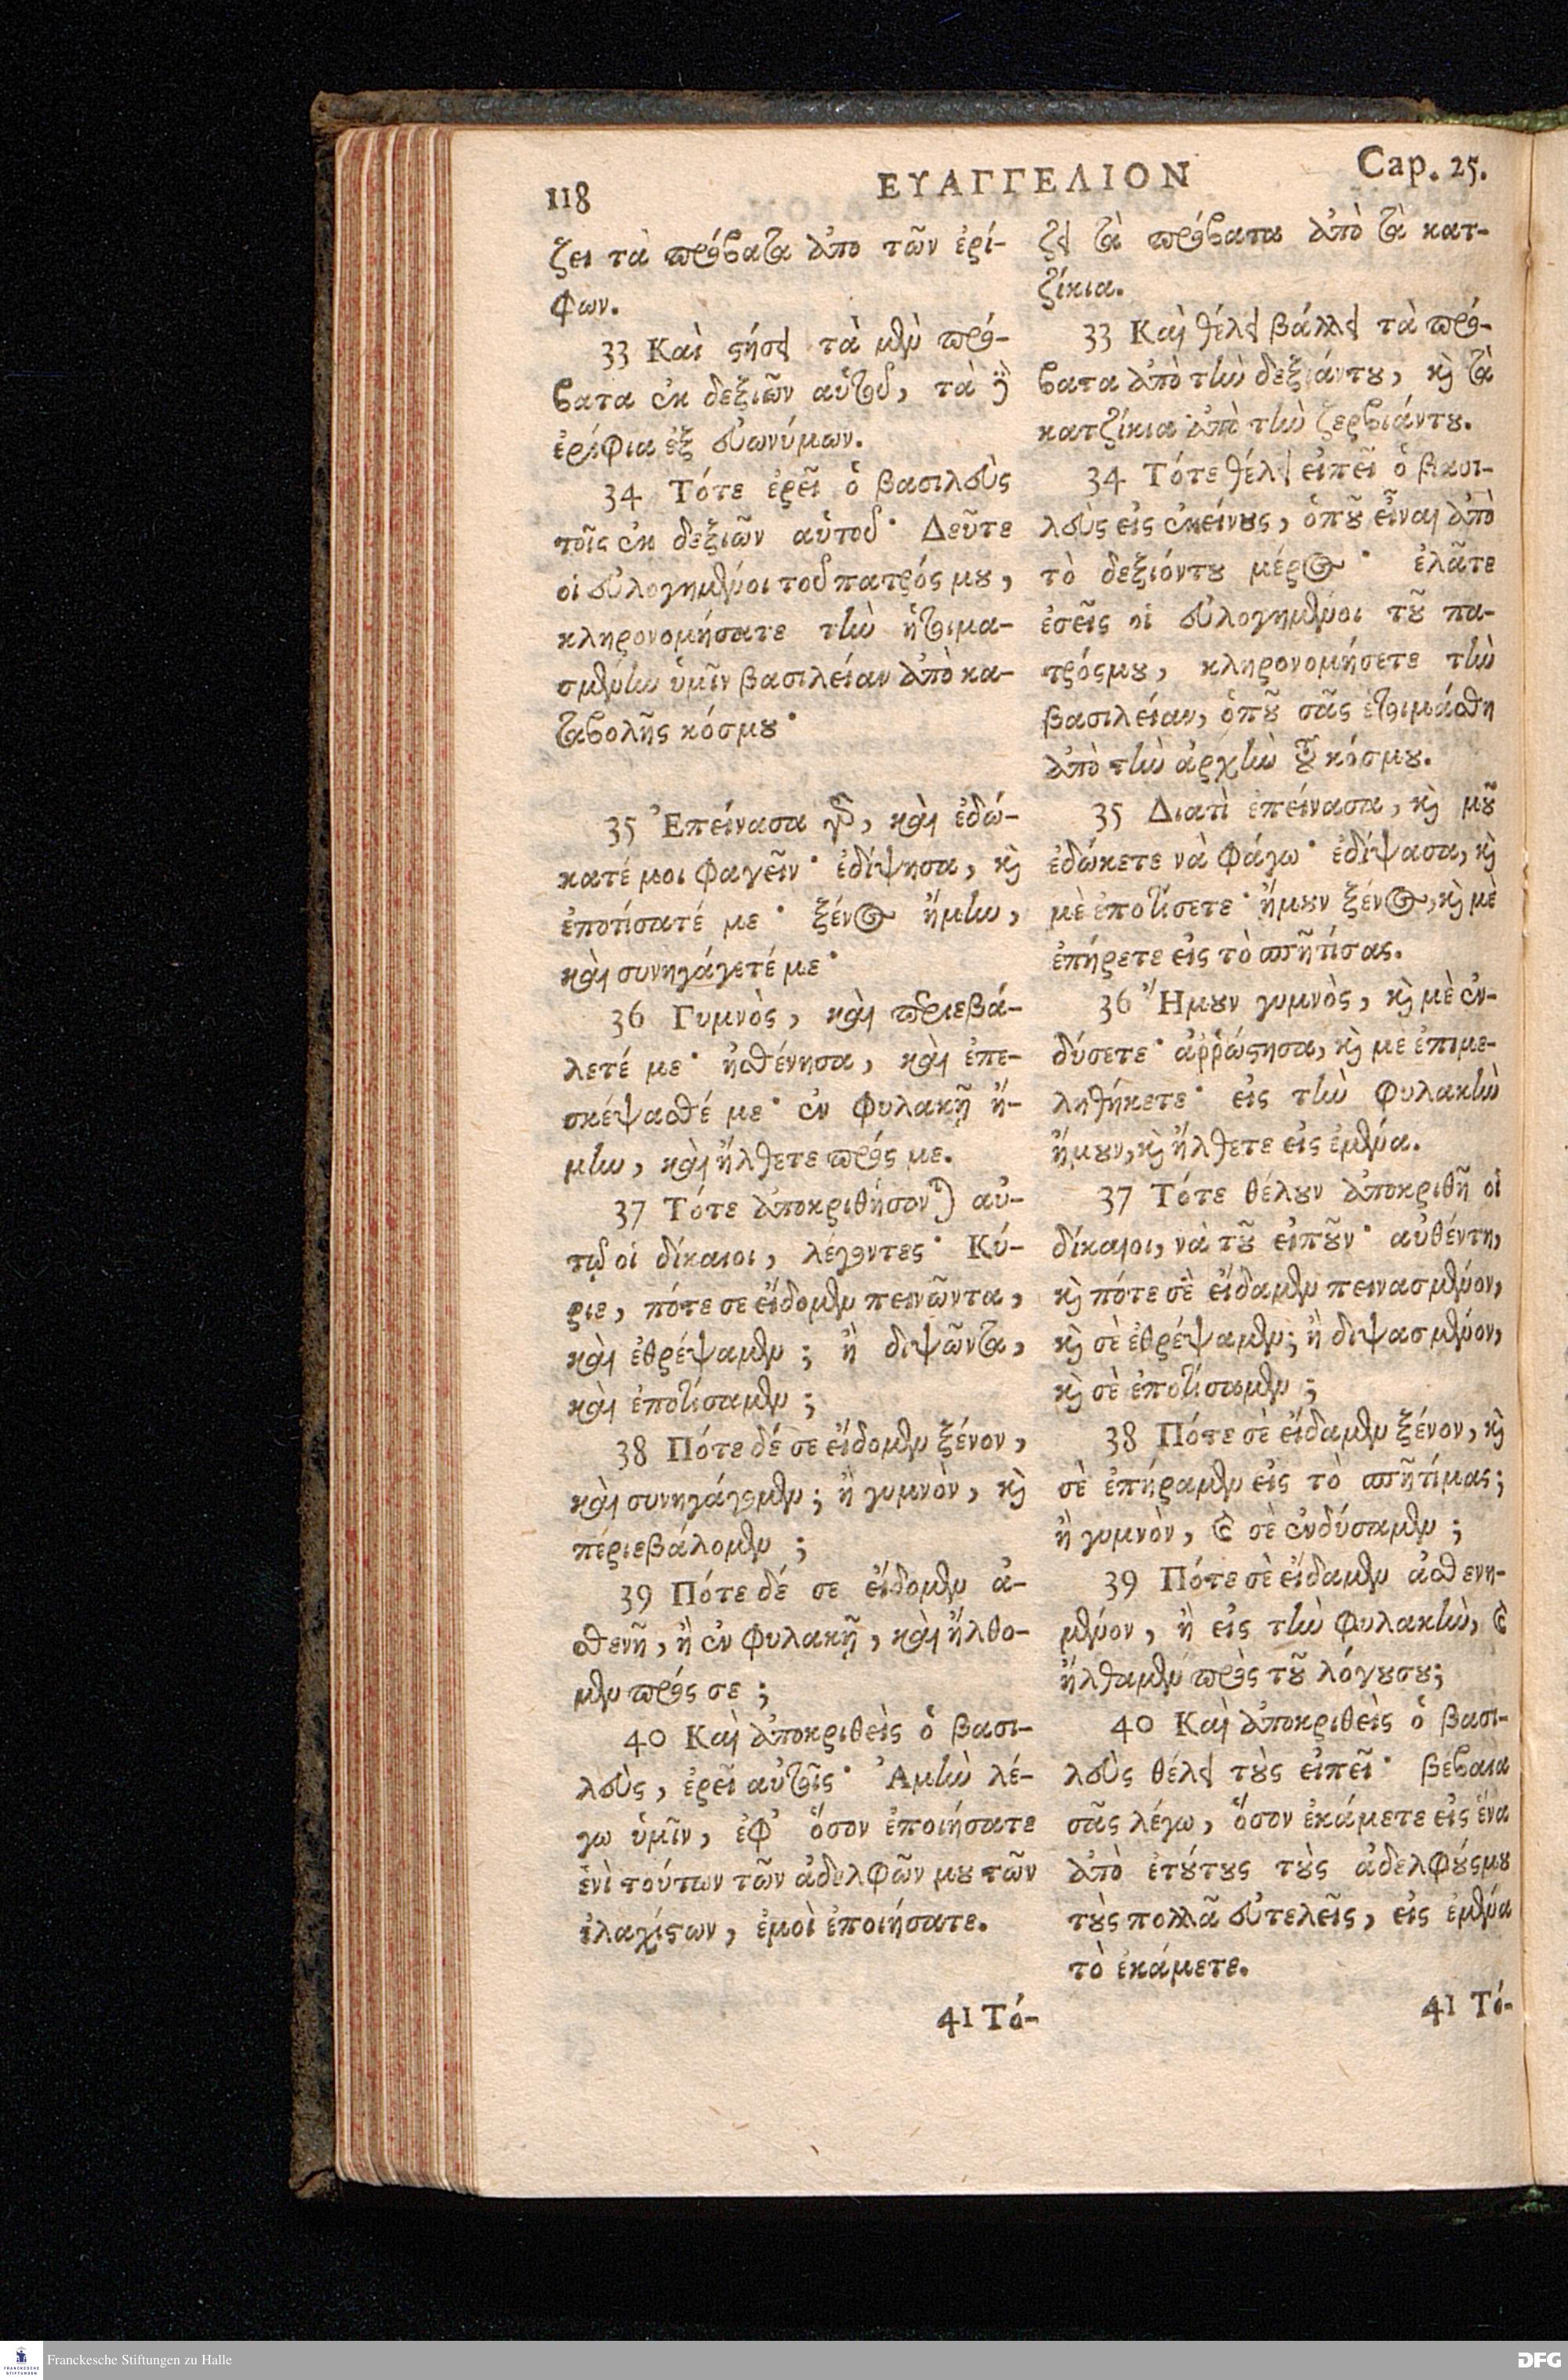 118
ΕΥΑΓΓΕΛΙΟΝ
Cap. 25.
ζει τὰ πρόβατα ἀπο τῶν ἐρί-
φων.
33 Καὶ ςήσει τὰ μὲν πρό-
βατα ἐκ δεξιῶν αὑτοῦ, τὰ δὲ
ἐρίφια ἐξ εὐωνύμων.
34 Τότε ἐρεῖ ὁ βασιλεὺς
τοῖς ἐκ δεξιῶν αὑτοῦ· Δεῦτε
οἱ εὐλογημένοι τοῦ πατρός μου,
κληρονομήσατε τὴν ἡτοιμα-
σμένην ὑμῖν βασιλείαν ἀπὸ κα-
ταβολῆς κόσμου·
35 Ἐπείνασα γὰρ, καὶ ἐδώ-
κατέ μοι φαγεῖν· ἐδίψησα, καὶ
ἐποτίσατέ με· ξένος ἤμην,
καὶ συνηγάγετέ με·
36 Γυμνὸς, καὶ περιεβά-
λετέ με· ἠσθένησα, καὶ ἐπε-
σκέψασθέ με· ἐν φυλακῇ ἤ-
μην, καὶ ἤλθετε πρός με.
37 Τότε ἀποκριθήσονται αὐ-
τῷ οἱ δίκαιοι, λέγοντες· Κύ-
ριε, πότε σε εἴδομεν πεινῶντα,
καὶ ἐθρέψαμεν; ἢ διψῶντα,
καὶ ἐποτίσαμεν;
38 Πότε δέ σε εἴδομεν ξένον,
καὶ συνηγάγομεν; ἢ γυμνὸν, καὶ
πέριεβάλομεν;
39 Πότε δέ σε εἴδομεν ἀ-
σθενῆ, ἢ ἐν φυλακῇ, καὶ ἤλθο-
μεν πρός σε;
40 Καὶ ἀποκριθεὶς ὁ βασι-
λεὺς, ἐρεῖ αὐτοῖς· Ἀμὴν λέ-
γω ὑμῖν, ἐφ' ὅσον ἐποιήσατε
ἑνὶ τούτων τῶν ἀδελφῶν μου τῶν
ἐλαχίςων, ἐμοὶ ἐποιήσατε.
41 Τό-
ζει τὰ πρόβατα ἀπὸ τὰ κατ-
ζίκια.
33 Καὶ θέλει βάλλει τὰ πρό-
βατα ἀπὸ τὴν δεξιάντου, καὶ τὰ
κατζίκια ἀπὸ τὴν ζερβιάντου.
34 Τότε θέλει εἰπεῖ ὁ βασι-
λεὺς εἰς ἐκείνους, ὁποῦ εἶναι ἀπὸ
τὸ δεξιόντου μέρος· ἐλᾶτε
ἐσεῖς οἱ εὐλογημένοι τοῦ πα-
τρόςμου, κληρονομήσετε τὴν
βασιλείαν, ὁποῦ σᾶς ἑτοιμάσθη
ἀπὸ τὴν ἀρχὴν τοῦ κόσμου.
35 Διατὶ ἐπείνασα, καὶ μοῦ
ἐδώκετε νὰ φάγω· ἐδίψασα, καὶ
μὲ ἐποτίσετε· ἤμουν ξένος, καὶ μὲ
ἐπήρετε εἰς τὸ σπῆτίσας.
36 Ἤμουν γυμνὸς, καὶ μὲ ἐν-
δύσετε· ἀῤῥώςησα, καὶ μὲ ἐπιμε-
ληθήκετε· εἰς τὴν φυλακὴν
ἤμουν, καὶ ἤλθετε εἰς ἐμένα.
37 Τότε θέλουν ἀποκριθῆ οἱ
δίκαιοι, νὰ τοῦ εἰποῦν· αὐθέντη,
καὶ πότε σὲ εἴδαμεν πεινασμένον,
καὶ σὲ ἐθρέψαμεν; ἢ διψασμένον,
καὶ σὲ ἐποτίσαμεν;
38 Πότε σὲ εἴδαμεν ξένον, καὶ
σὲ ἐπήραμεν εἰς τὸ σπῆτίμας;
ἢ γυμνὸν, καὶ σὲ ἐνδύσαμεν;
39 Πότε σὲ εἴδαμεν ἀσθενη-
μένον, ἢ εἰς τὴν φυλακὴν, καὶ
ἤλθαμεν πρὸς τοῦ λόγουσου;
40 Καὶ ἀποκριθεὶς ὁ βασι-
λεὺς θέλει τοὺς εἰπεῖ· βέβαια
σᾶς λέγω, ὅσον ἐκάμετε εἰς ἕνα
ἀπὸ ἐτούτους τοὺς ἀδελφούςμου
τοὺς πολλᾶ εὐτελεῖς, εἰς ἐμένα
τὸ ἐκάμετε.
41 Τό-
Franckesche Stiftungen zu Halle
DFG